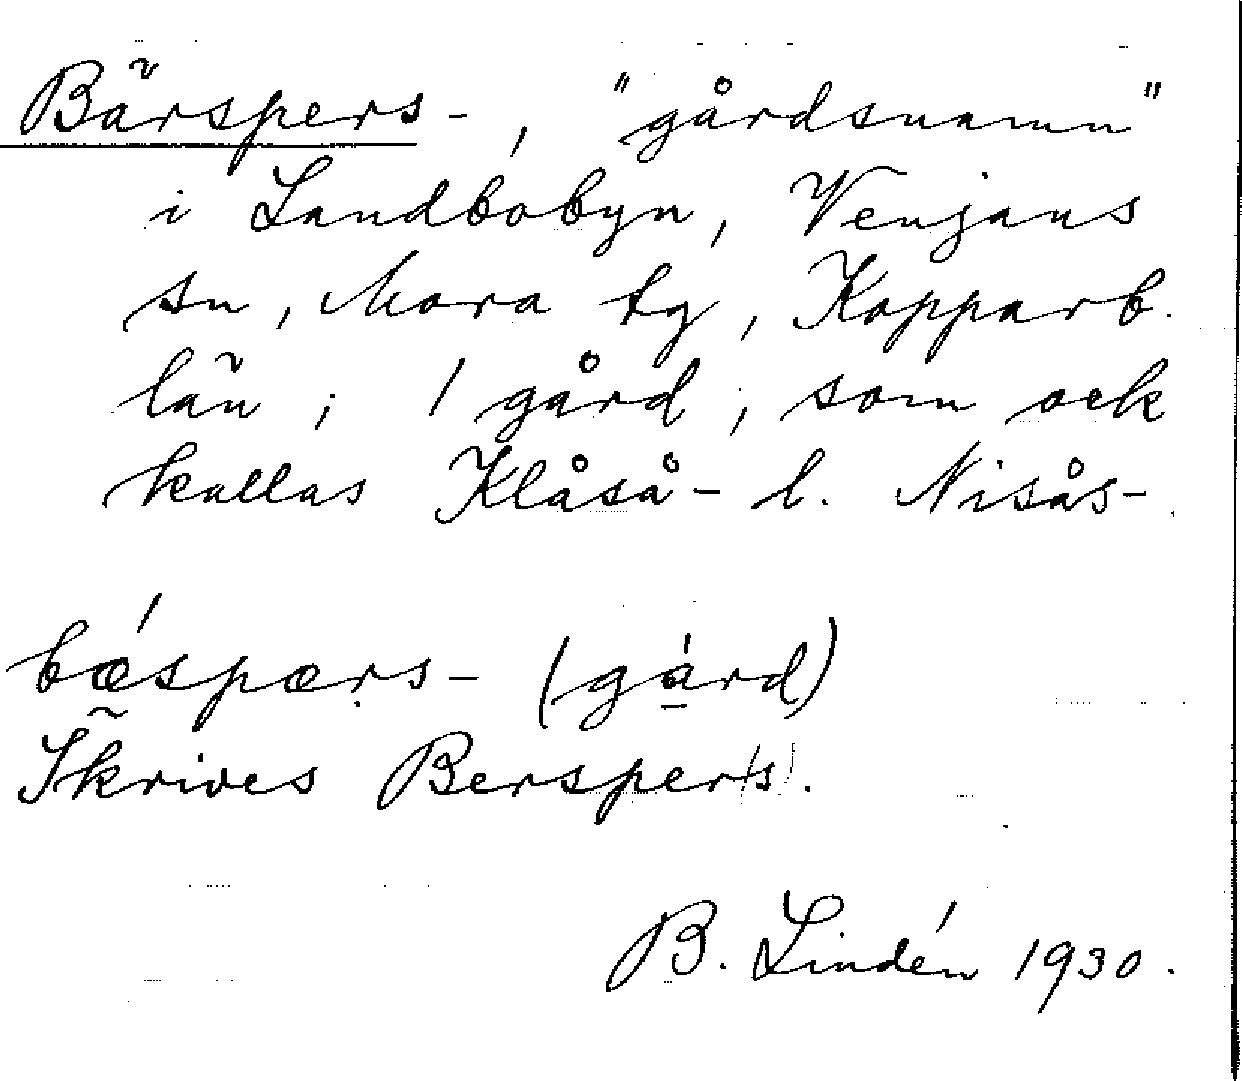 Bärspers-, "gårdsnamn"
i Landbobyn, Venjans
sn, Mora tg, Kopparb.
län; 1 gård, som ock
kallas Klåså- l. Nisås-.
bǽspærs- (gård)
Skrives Berspers.
B. Lindén 1930.